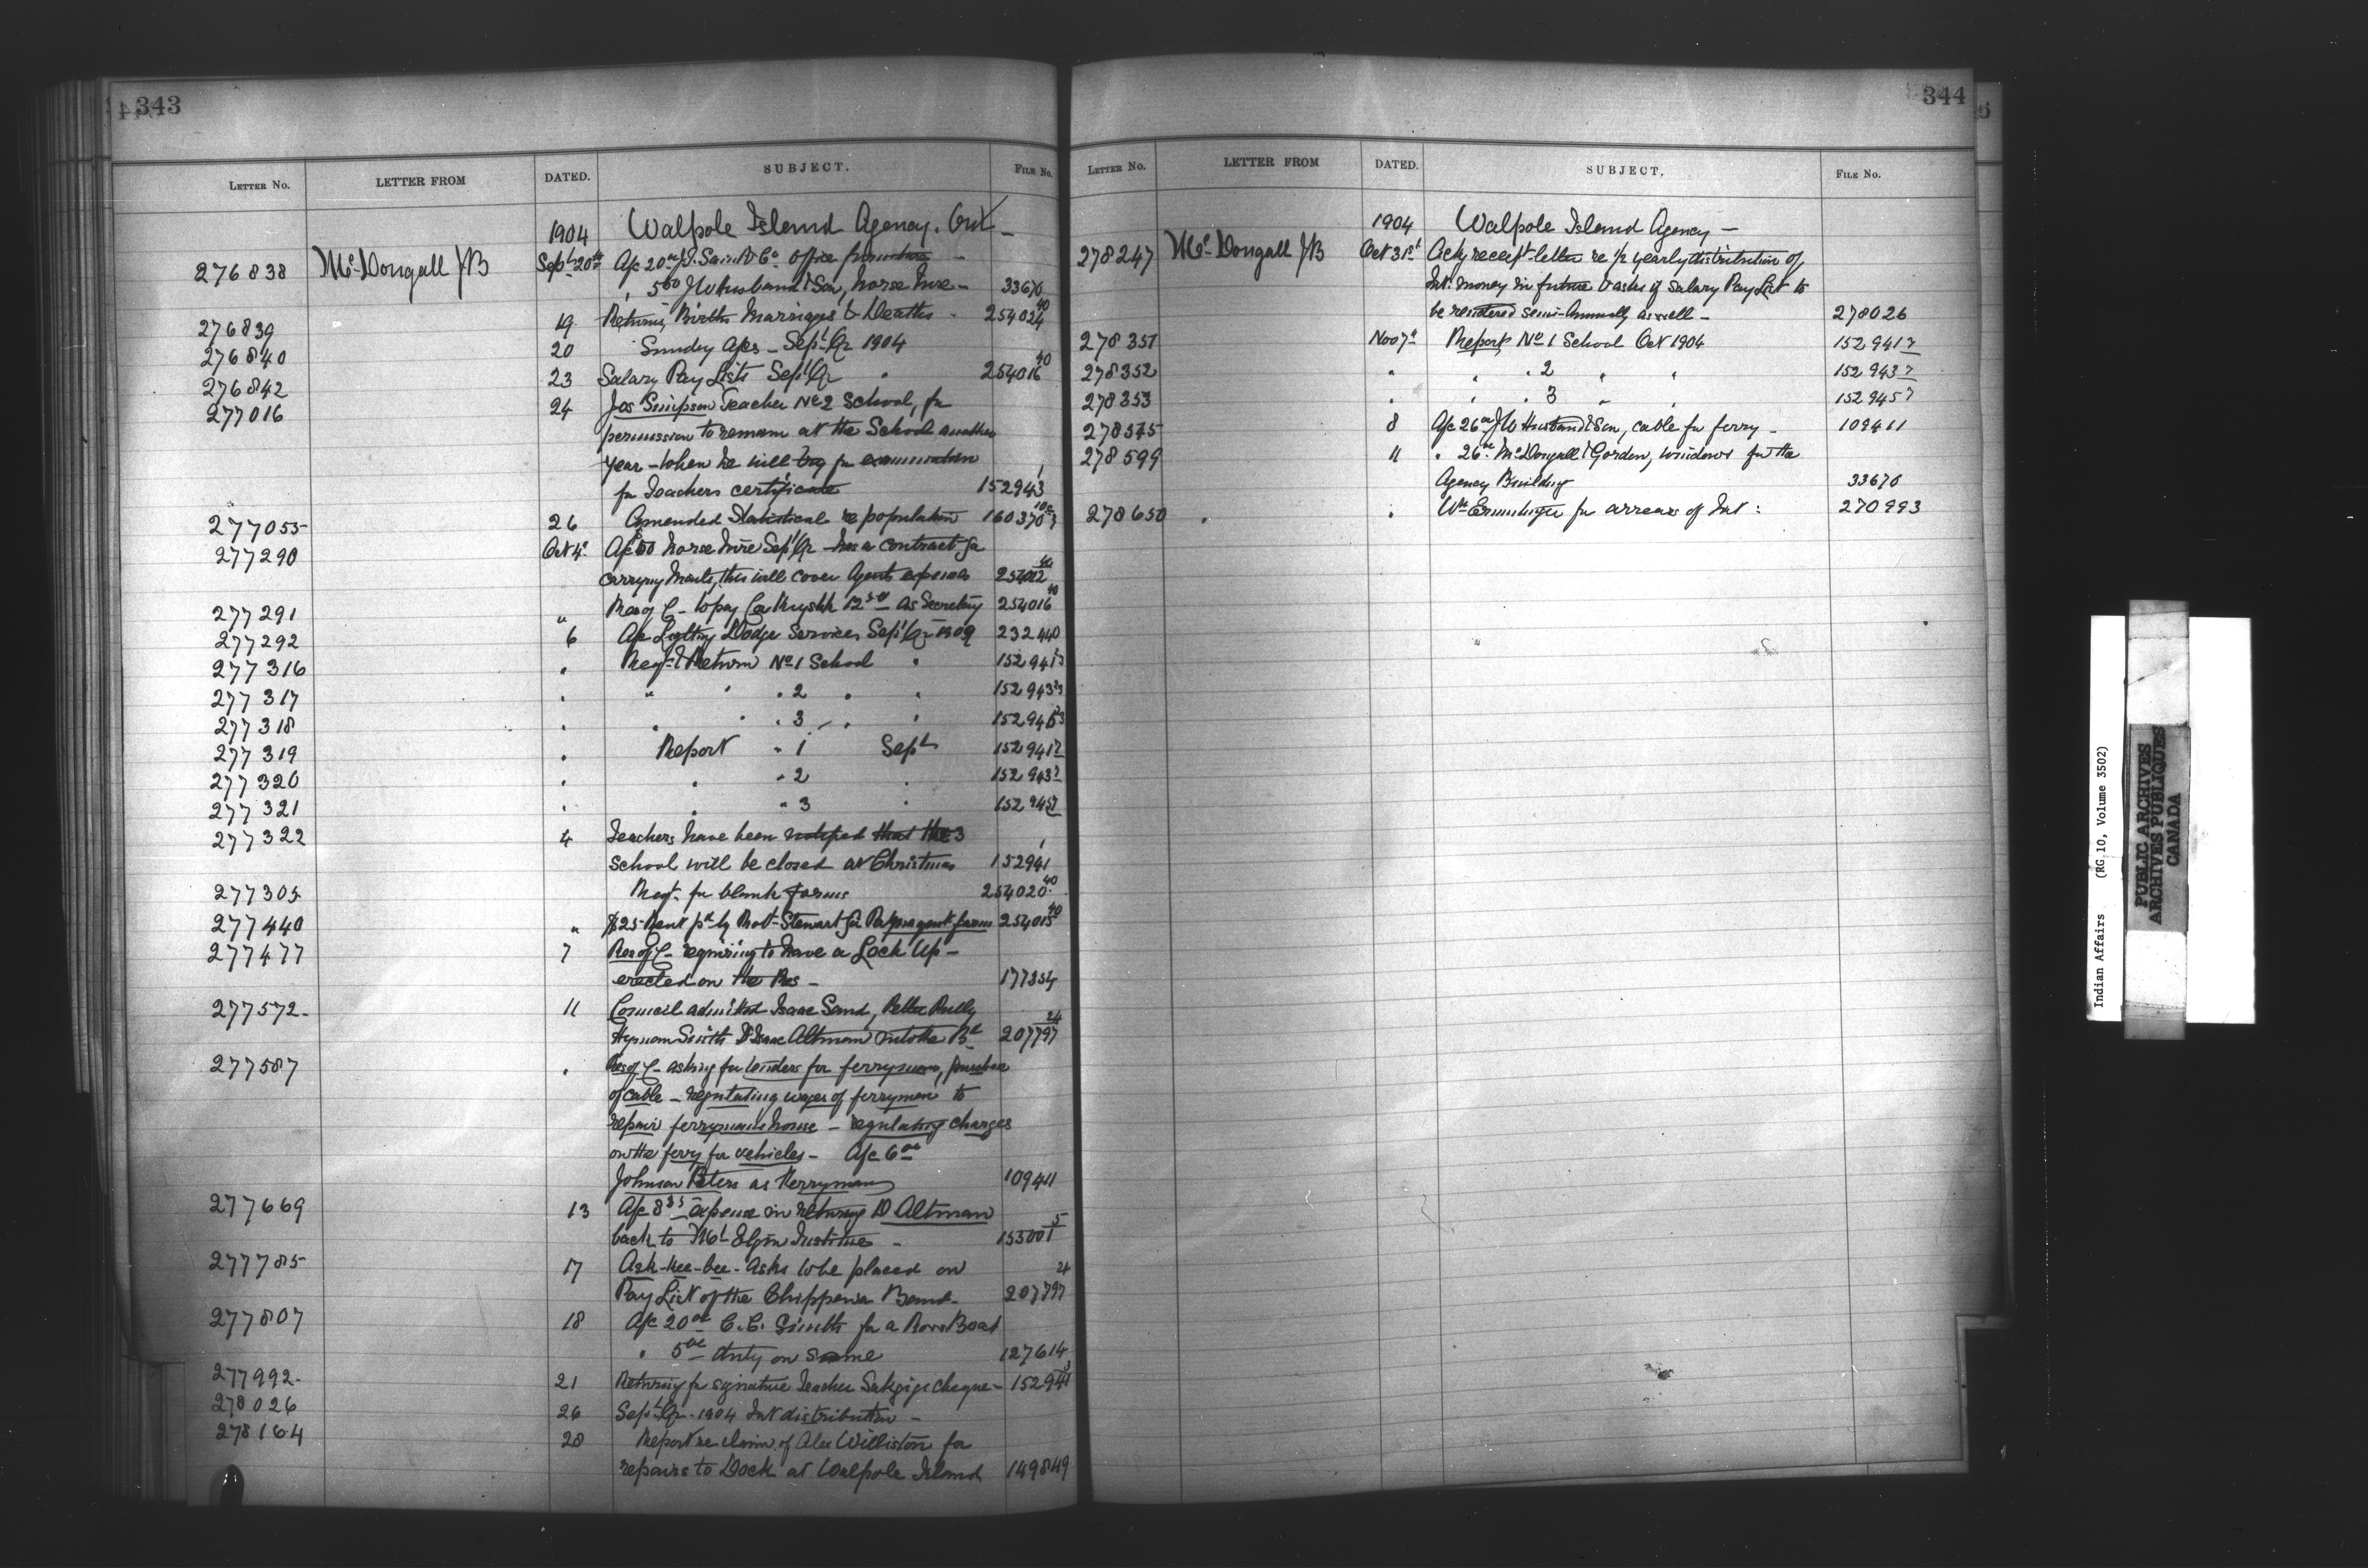 343
LETTER NO. LETTER FROM DATED. SUBJECT. FILE No.
1904 Walpole Island Agency. Ont
276838 McDougall JB Sept 20th A/c 20 Office furniture
" 5 J W Husband & Son, horse hire - 33670
276839 19 Returns, Births Marriages & Deaths - 254024 40
276840 20 Sundry A/cs - Sept Qr 1904
276842 23 Salary Pay Lists Sept Qr " 254016 40
277016 24 Jos Simpson Teacher No 2 School, for
permission to remain at the School another
year - when he will try for examination
for Teachers certificate 152943 1
277055 26 Amended Statistical re population 160370
277290 Oct 4 A/c horse hire Sept Qr - has a contract for
carrying Mails, this will cover Agents expenses 254022 40
277291 " Res of C - to pay 12 50 as Secretary 254016 40
277292 6 A/c Dodge services Sept Qr 232440
277316 " Reqn & Return No 1 School " 152941
277317 " " " " 2 " " 152943
277318 " " " " 3 " " 152945
277319 " Report " 1 Sept 152941 2
277320 " " " 2 " 152943 2
277321 " " " 3 " 152945 2
277322 4 Teachers have been notified that the 3
School will be closed at Christmas 152941 1
277305 Reqn for blank forms 254020 40
277440 " $25 Rent pd by Robt Stewart for farm 254015 40
277477 7 Res of C - requiring to have a Lock Up -
erected on the Res - 177354
277572 - 11 Council admitted Isaac Sand,
Hyman Smith & Isaac Altman into the Bd 207797 24
277587 " Res of C - asking for tenders for ferryman, purchase
of cable - regulating wages of ferryman to
repair ferrymans house - regulating charges
on the ferry for vehicles - A/c 6 00
Johnson Peters as Ferryman 109411
277669 13 A/c 8 35 expense in returning D Altman
back to Mt Elgin Institute - 155001 5
277785 17 Ask-kee-bee - asks to be placed on
Pay List of the Chippewa Band - 207797 24
277807 18 A/c 20 00 C. C. Smith for a Row Boat
" 5 00 duty on same 127614
277992 - 21 Returning for signature Teacher cheque - 152941 3
278026 26 Sept Qr - 1904 Int distribution -
278164 28 Report re claim of Alex Williston for
repairs to Dock at Walpole Island 149849
344
LETTER No. LETTER FROM DATED. SUBJECT. FILE No.
1904 Walpole Island Agency -
278247 McDougall JB Oct 31st Ack receipt letter re ½ yearly distribution of
Int. money in future & asks if Salary Pay List to
be rendered semi-annually as well - 278026
278351 Nov 7th Report No 1 School Oct 1904 152941 2
278352 " " " 2 " " 152943 2
278353 " " " 3 " " 152945 2
278575 8 A/c 26 J W Husband & Son, cable for ferry - 109411
278599 11 " 26 McDougall & Gordon, windows for the
Agency Building 33670
278650 " " Wm for arrears of Int : 270993
Indian Affairs (RG 10, Volume 3502)
PUBLIC ARCHIVES
ARCHIVES PUBLIQUES
CANADA